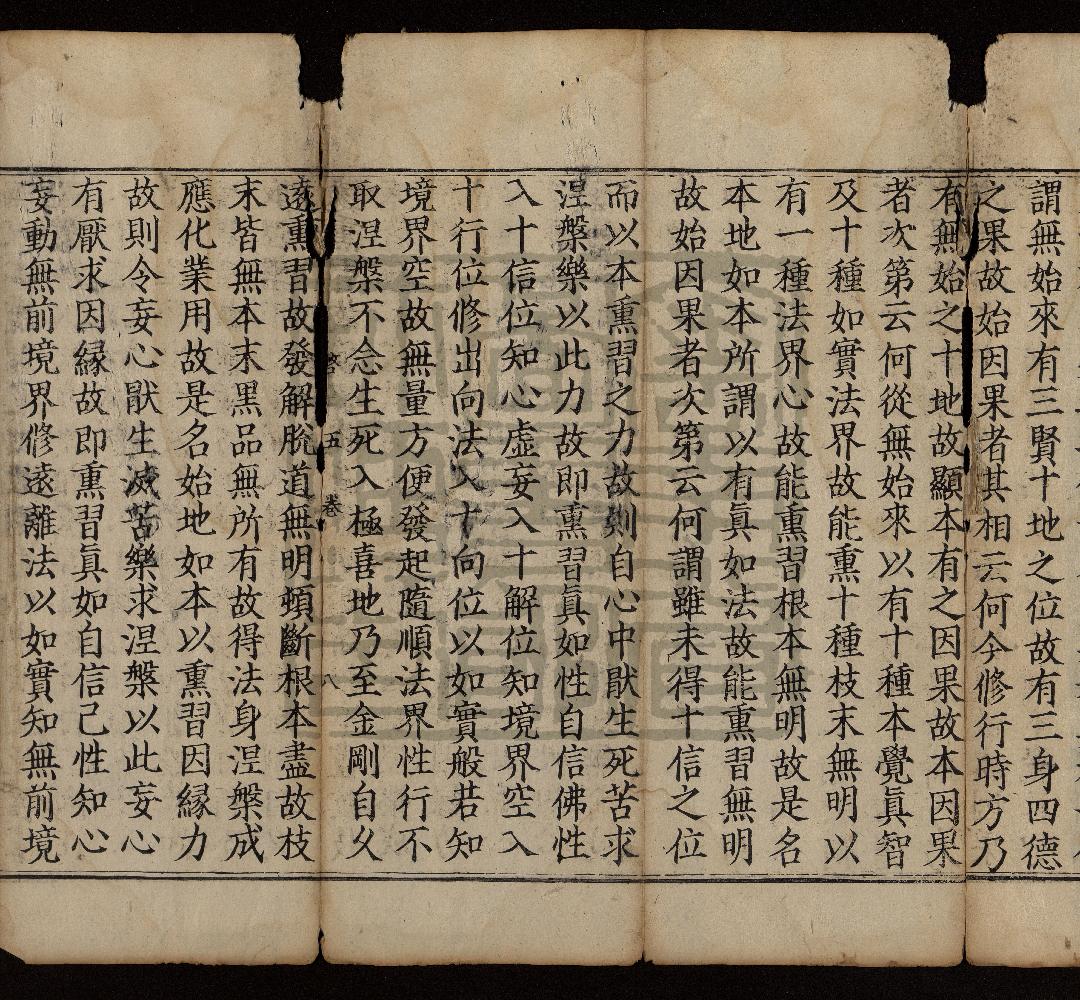 謂無始來有三賢十地之位故有三身四德
之果故始因果者其相云何今修行時方乃
有無始之十地故顯本有之因果故本因果
者次第云何從無始來以有十種本覺真智
及十種如實法界故能熏十種枝末無明以
有一種法界心故能熏習根本無明故是名
本地如本所謂以有眞如法故能熏習無明
故始因果者次第云何謂雖未得十信之位
而以本熏習之力故則自心中猒生死苦求
涅槃樂以此力故即熏習眞如性自信佛性
入十信位知心虛妄入十解位知境界空入
十行位修出向法入十向位以如實般若知
境界空故無量方便發起隨順法界性行不
取涅槃不念生死入極喜地乃至金剛自久
五 卷 八
遠熏習故發解脫道無明頓斷根本盡故枝
末皆無本末黑品無所有故得法身涅槃成
應化業用故是名始地如本以熏習因緣力
故則令妄心猒生滅苦樂求涅槃以此妄心
有厭求因緣故即熏習眞如自信己性知心
妄動無前境界修遠離法以如實知無前境